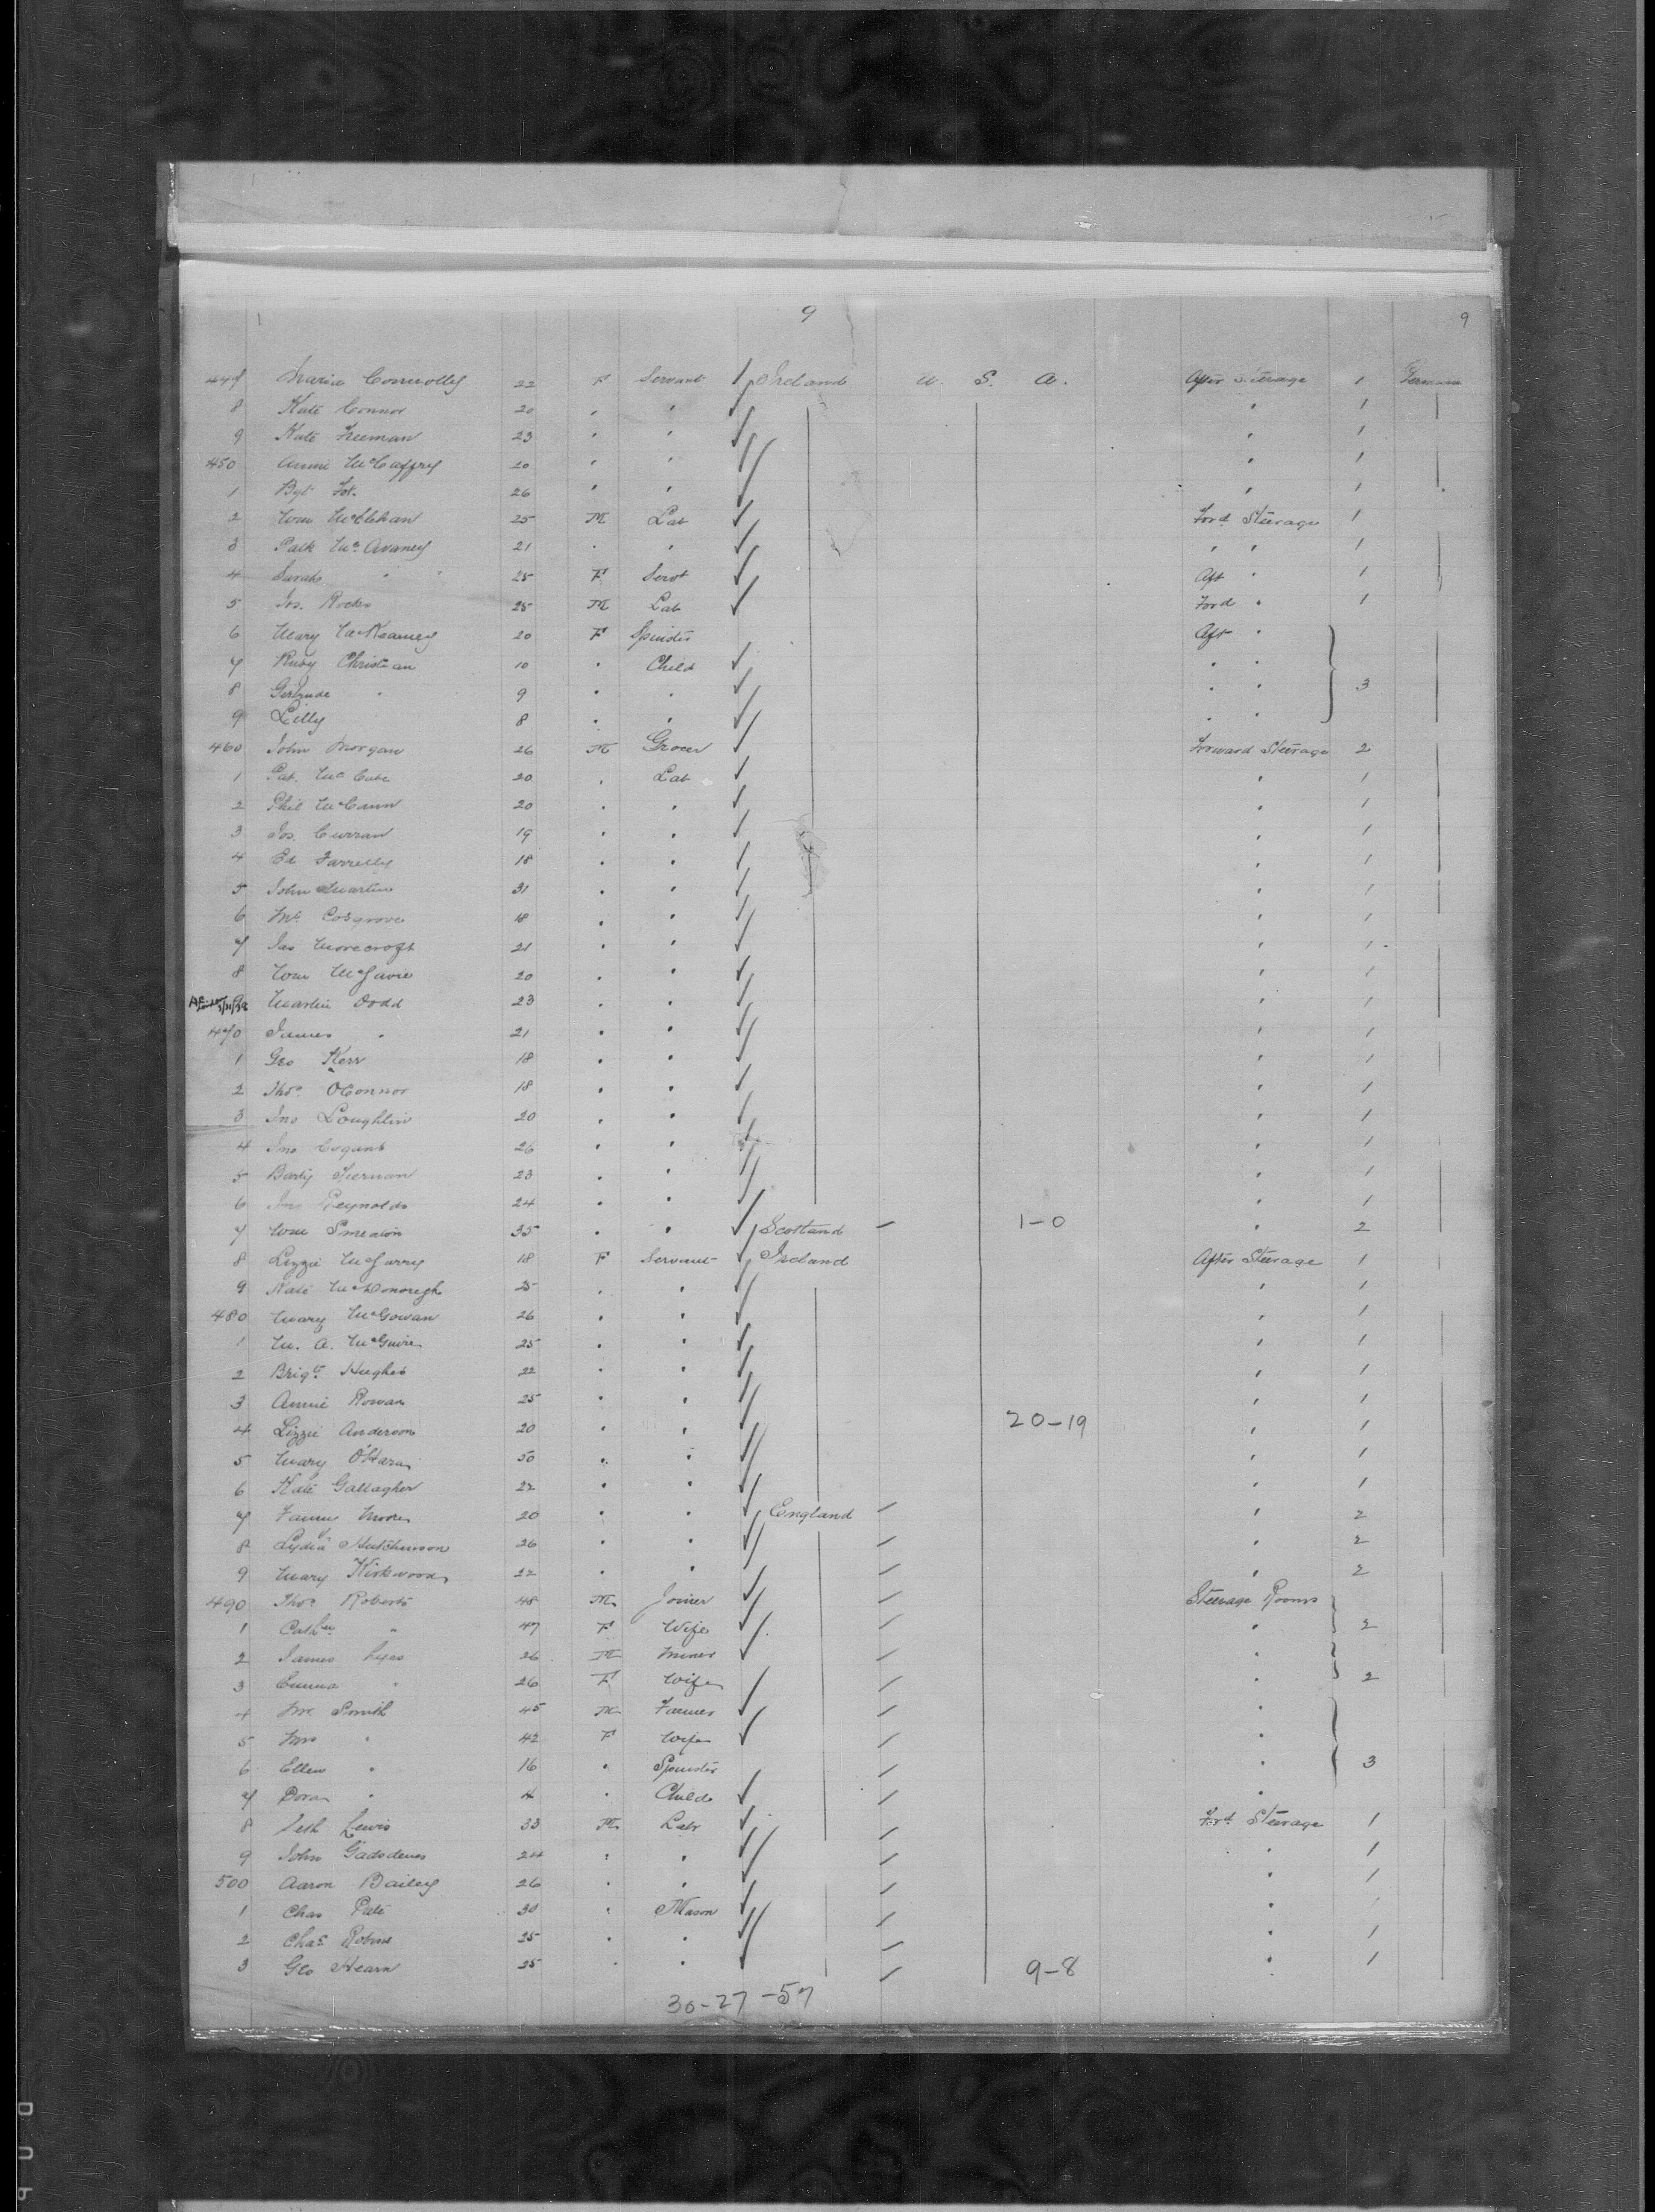 9 9
447 Maria Connolly 22 F Servant Ireland U. S. A. After Steerage 1
8 Kate Connor 20 " " " 1
9 Kate Freeman 23 " " " 1
450 Annie McCaffry 20 " " " 1
1 Bgt Fox 26 " " " 1
2 Wm McElehan 25 M Lab Ford Steerage 1
3 Patk McAvaney 21 " " " " 1
4 Sarah " " 25 F Servt Aft " 1
5 Jos. Roche 25 M Lab Ford " 1
6 Mary McKearney 20 F Spinster Aft "
7 Ruby Christian 10 " Child " "
8 Gertrude " 9 " " " " 3
9 Lilly 8 " " " "
460 John Morgan 26 M Grocer Forward Steerage 2
1 Pat. McCabe 20 " Lab " 1
2 Phil McCann 20 " " " 1
3 Jos. Curran 19 " " " 1
4 Ed Farrelly 18 " " " 1
5 John Martin 31 " " " 1
6 Ml. Cosgrove 18 " " " 1
7 Jas Morecroft 21 " " " 1
8 Wm 20 " " " 1
9 Martin Dodd 23 " " " 1
470 James " 21 " " " 1
1 Geo Kerr 18 " " " 1
2 Thos. OConnor 18 " " " 1
3 Jno Loughlin 20 " " " 1
4 Jno 26 " " " 1
5 Barty Tiernan 23 " " " 1
6 Jno Reynolds 24 " " " 1
7 Wm Smeaton 35 " " Scotland 1-0 " 2
8 Lizzie McGarry 18 F Servant Ireland After Steerage 1
9 Kate McDonough 25 " " " 1
480 Mary McGowan 26 " " " 1
1 M. A. McGuire 25 " " " 1
2 Brigt Hughes 22 " " " 1
3 Annie Rowan 25 " " " 1
4 Lizzie Anderson 20 " " 20-19 " 1
5 Mary O'Hara 50 " " " 1
6 Kate Gallagher 22 " " " 1
7 Fannie Moore 20 " " England " 2
8 Lydia Hutchinson 26 " " " 2
9 Mary Kirkwood 22 " " " 2
490 Thos. Roberts 48 M Joiner Steerage Rooms
1 " 47 F Wife " 2
2 James 26 M Miner "
3 Emma " 26 F Wife " 2
4 Mr Smith 45 M Farmer "
5 Mrs " 42 F Wife "
6 Ellen " 16 " Spinster " 3
7 Dora " 4 " Child "
8 Lewis 33 M Labr Ford Steerage 1
9 John 24 " " " 1
500 Aaron Bailey 26 " " " 1
1 Chas Pate 30 " Mason " 1
2 Chas 25 " " " 1
3 Geo Hearn 25 " " 9-8 " 1
30-27-57